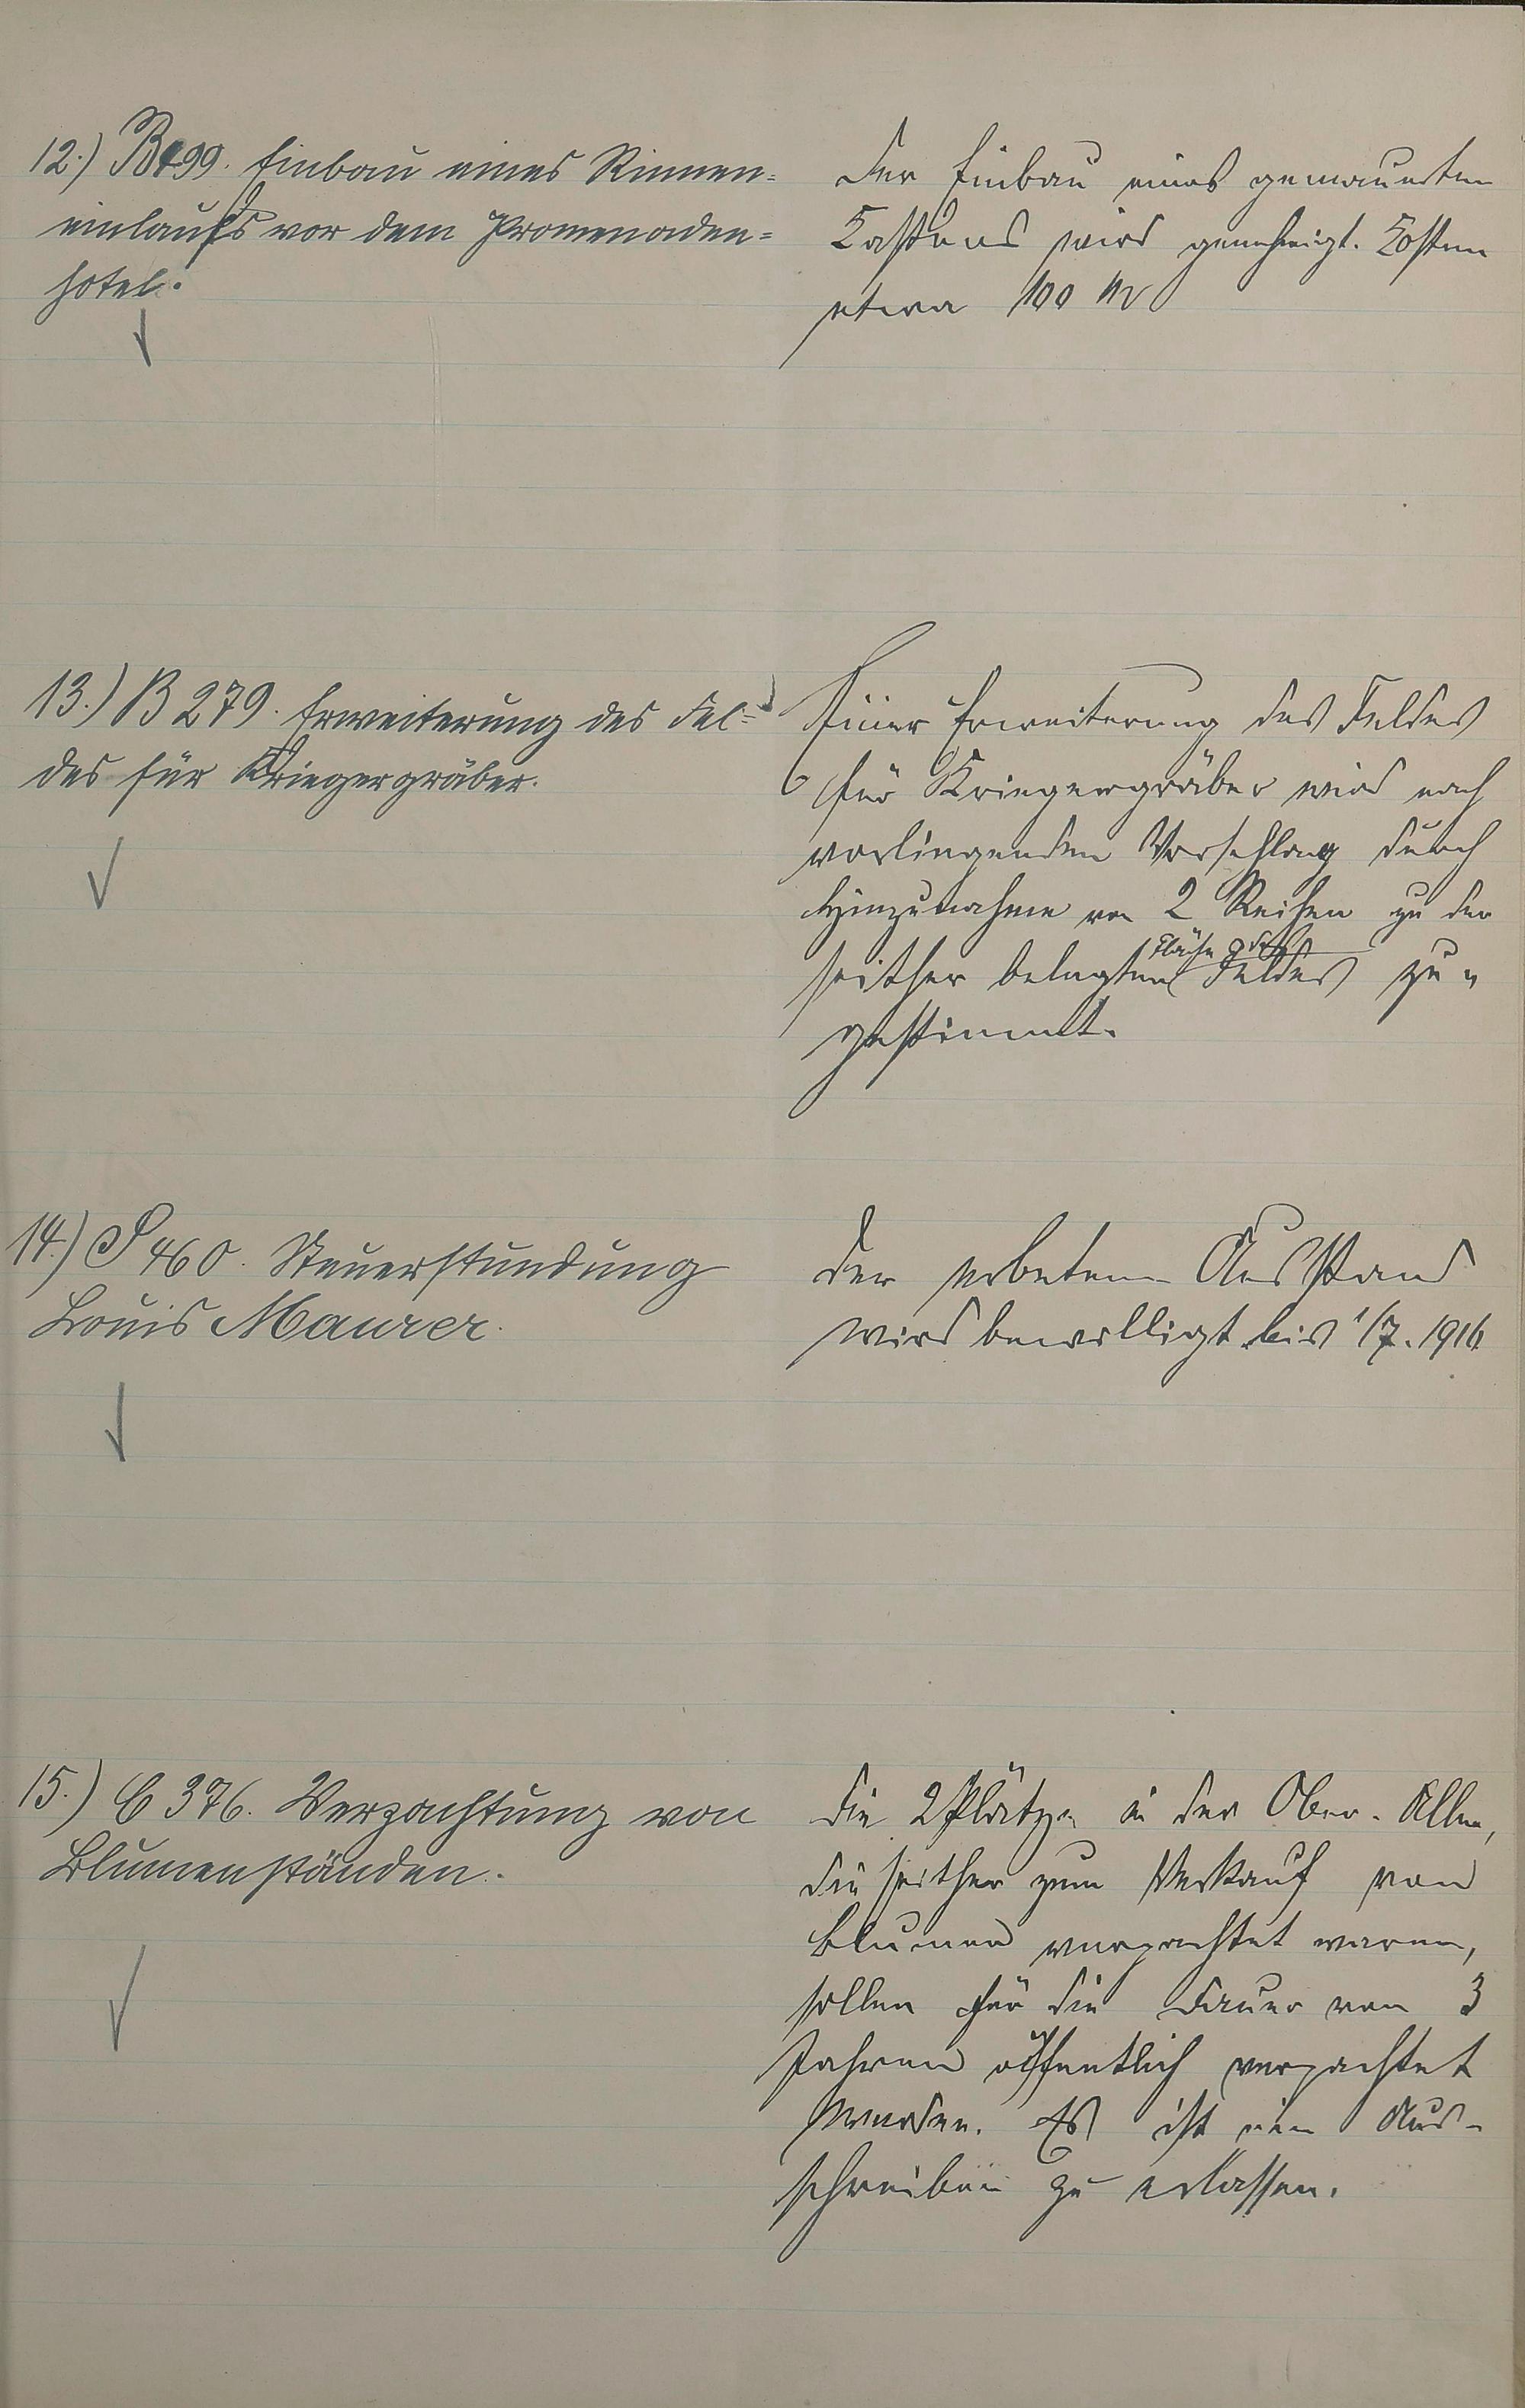 12.) B 499. Einbau eines Rinnen=
einlaufs vor dem Promenaden=
hotel.
Der Einbau eines gemauerten
Kastens wird genehmigt. Kosten
etwa 100 M
13.) B 279. Erweiterung des Fel=
des für Kriegergräber.
Einer Erweiterung des Feldes
für Kriegergräber wird nach
vorliegendem Vorschlag durch
Hinzunahme von 2 Reihen zu der
Fläche des
seither belegten Feldes zu=
gestimmt.
14.) S 460. Steuerstundung
Louis Maurer.
Der erbetene Ausstand
wird bewilligt bis 1/7. 1916
15.) C 376. Verpachtung von
Blumenständen.
Die 2 Plätze in der Ober-Allee,
die seither zum Verkauf von
Blumen verpachtet waren,
sollen für die Dauer von 3
Jahren öffentlich verpachtet
werden. Es ist ein Aus-
schreiben zu erlassen.